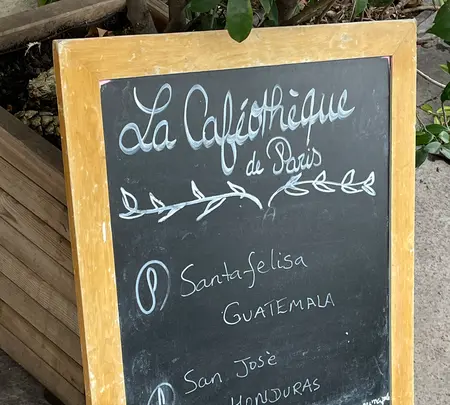 La Caféothèque
de Paris
Santa felisa
GUATEMALA
San José
HONDURAS